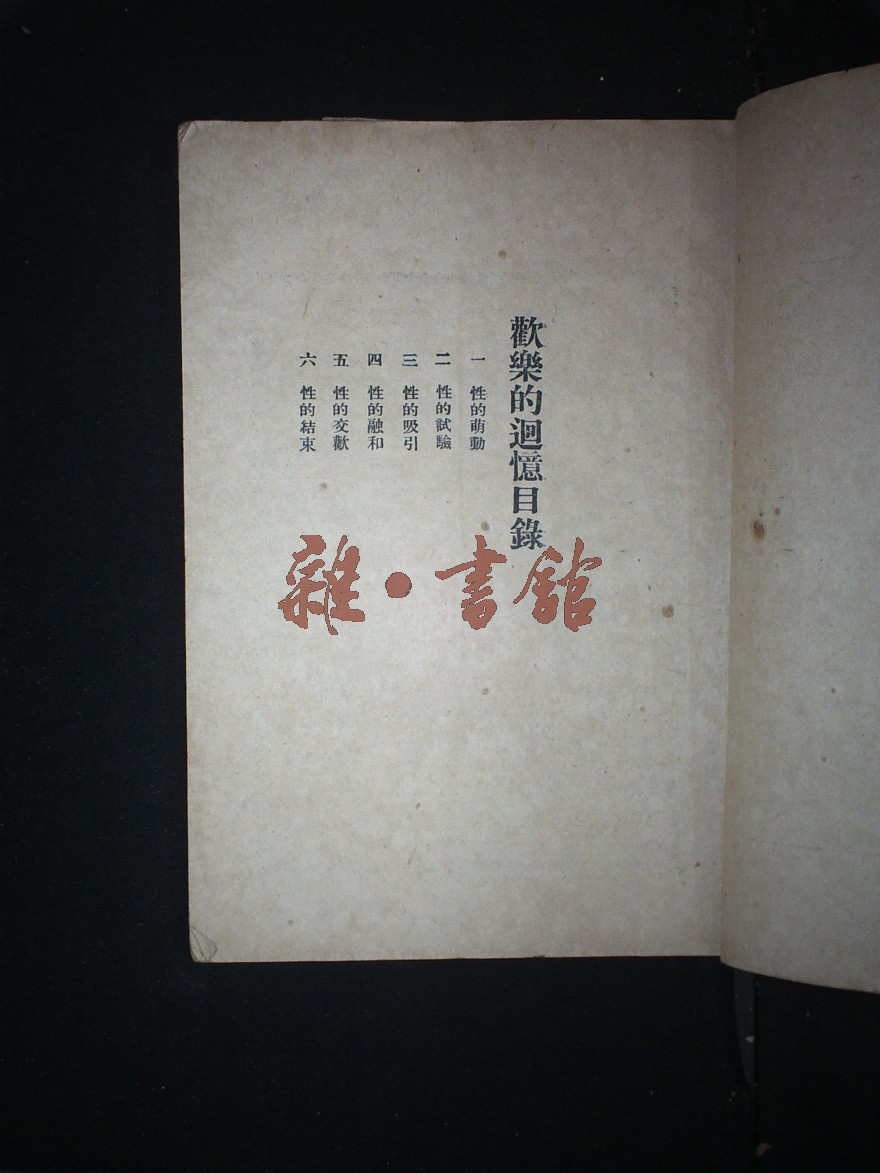 歡樂的迴憶目錄
一 性的萌動
二 性的試驗
三 性的吸引
四 性的融和
五 性的交歡
六 性的結束
雜·書館